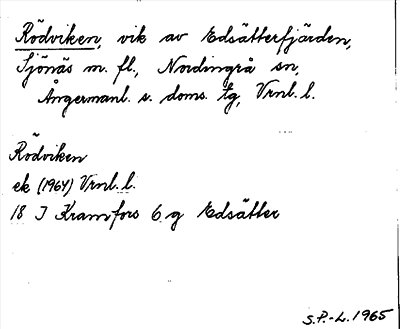 Rödviken, vik av Edsätterfjärden,
Sjönäs m. fl., Nordingrå sn,
Ångermanl. s. doms. tg, Vrnl. l.
Rödviken
ek (1964) Vrnl. l.
18 I Kramfors 6 g Edsätter
S.P.-L. 1965